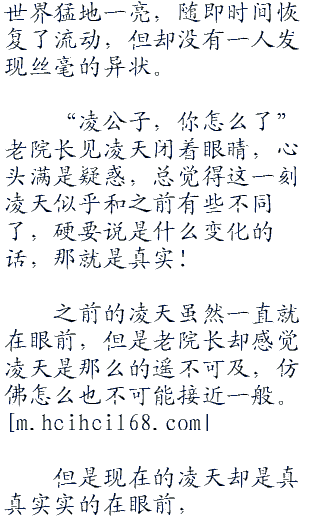 世界猛地一亮，随即时间恢
复了流动，但却没有一人发
现丝毫的异状。
“凌公子，你怎么了”
老院长见凌天闭着眼睛，心
头满是疑惑，总觉得这一刻
凌天似乎和之前有些不同
了，硬要说是什么变化的
话，那就是真实！
之前的凌天虽然一直就
在眼前，但是老院长却感觉
凌天是那么的遥不可及，仿
佛怎么也不可能接近一般。
[m.hcihcil68.com|
但是现在的凌天却是真
真实实的在眼前，